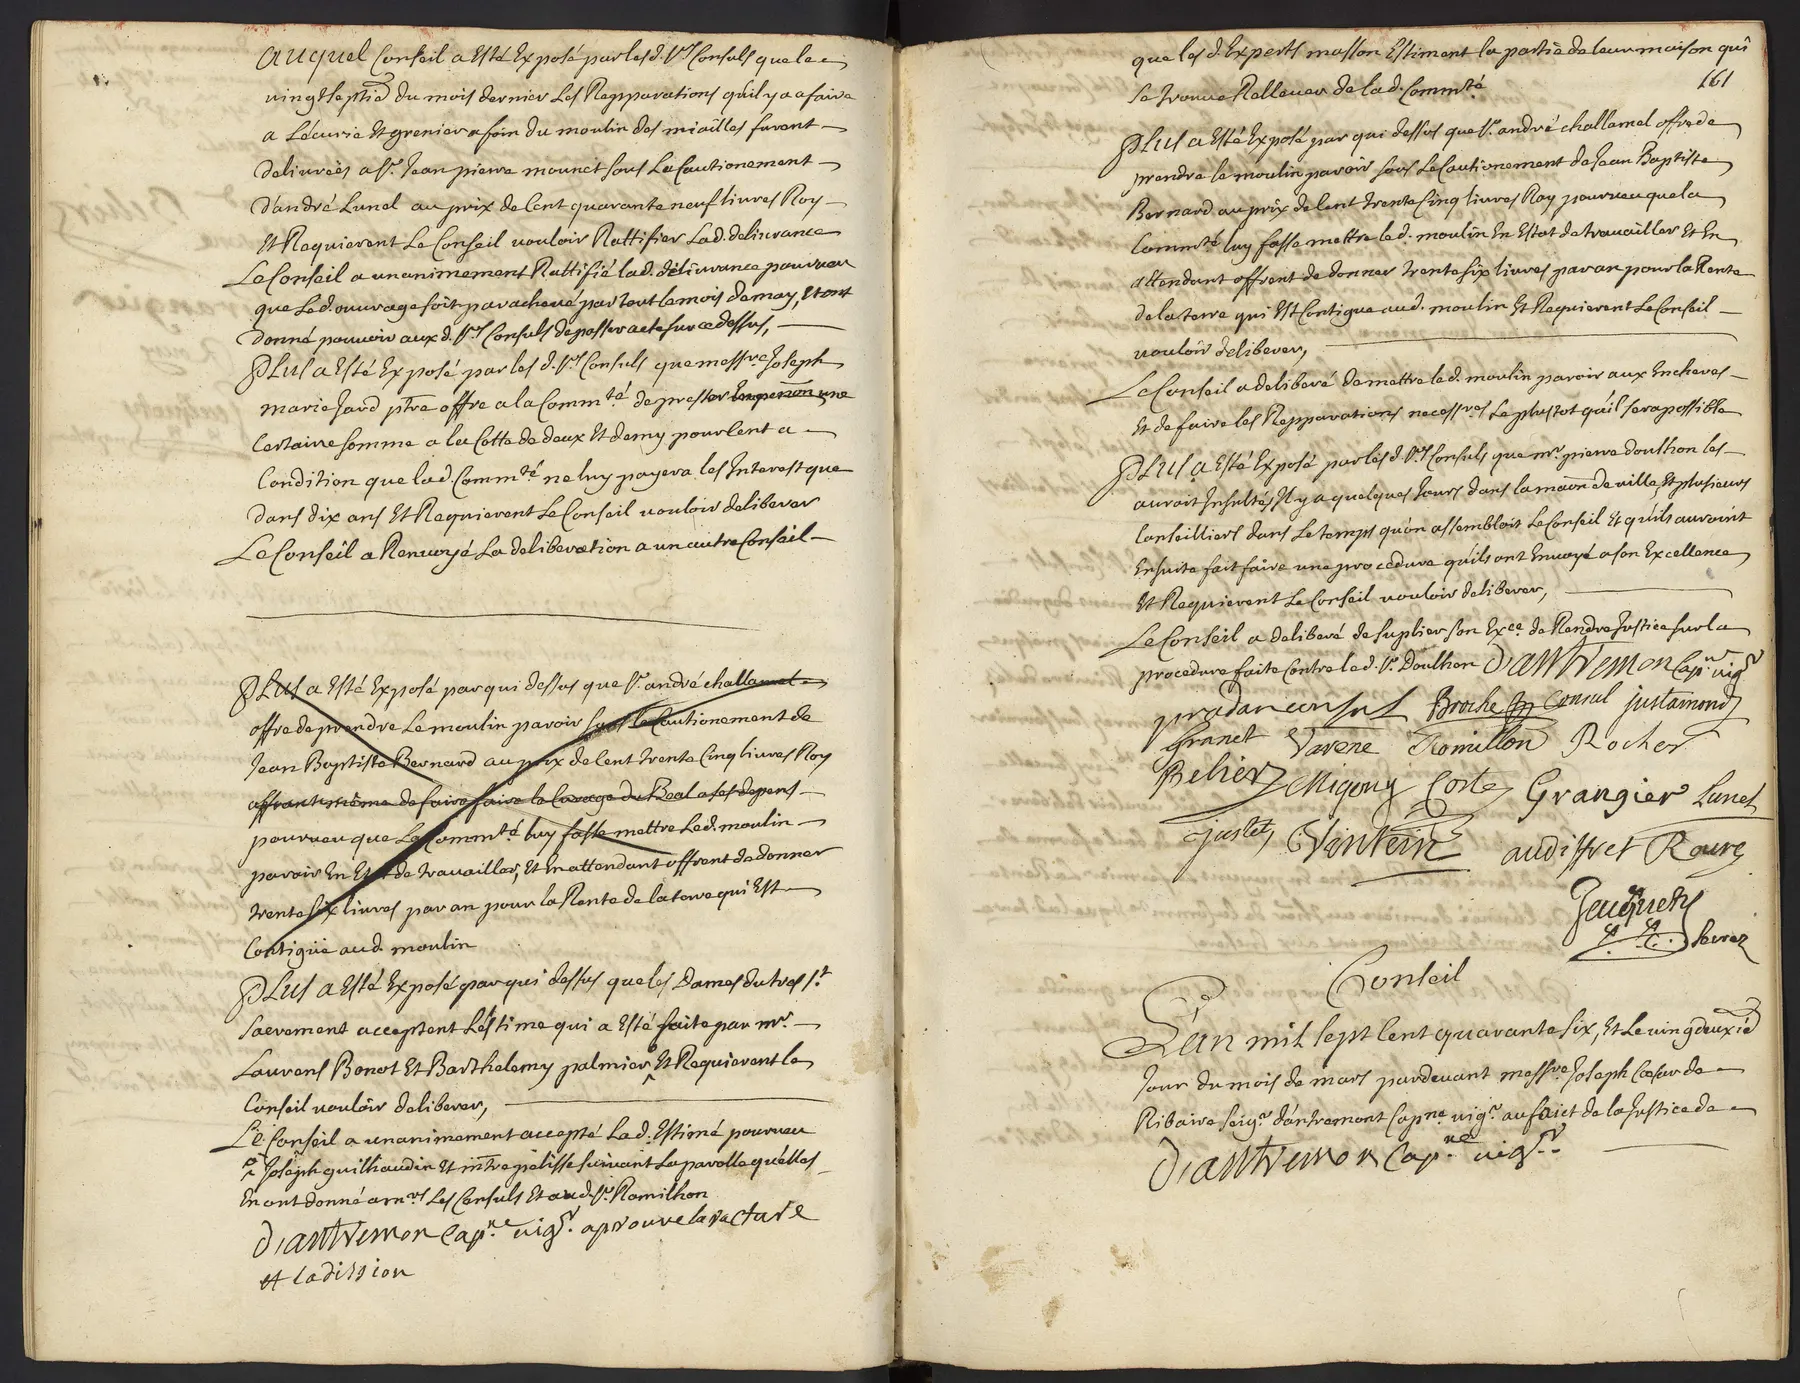 auquel Conseil a Esté Exposé par les d. Srs Consuls que le
vingt septie du mois dernier Les Repparations qu'il y a a faire
a Lécurie Et grenier a foin du moulin des miailles furent
delivrées a Sr. Jean pierre mounet sous Le Cautionement
d'andré Lunel au prix de Cent quarante neuf livres Roy
Et Requierent Le Conseil vouloir Rattifier Lad. delivrance
Le Conseil a unanimement Rattifié lad. délivrance pourveu
que Led. ouvrage soit parachevé par tout le mois de may, Et ont
donné pouvoir aux d. Srs Consuls de passer acte sur ce dessus,
PLus a Esté Exposé par les d. Srs Consuls que messre Joseph
marie Jard ptre offre a la Commté de prester une
Certaine somme a la Cotte de deux Et demy pour Cent a
Condition que lad. Commté ne luy payera les Interest que
dans dix ans Et Requierent Le Conseil vouloir deliberer
Le Conseil a Renvoyé La deliberation a un autre Conseil
PLus a Esté Exposé par qui dessus que Sr. andré challamel
offre de prendre Le moulin paroir sous le Cautionement de
Jean Baptiste Bernard au prix de Cent trente Cinq livres Roy
offrant même de faire faire le Curage du Beal a ses depens
pourveu que La Commté luy fasse mettre Led. moulin
paroir En Etat de travailler, Et En attendant offrent de donner
trente six livres par an pour la Rente de la terre qui Est
Contigüe aud. moulin
PLus a Esté Exposé par qui dessus que les Dames du tres St
Sacrement acceptent L'éstime qui a Esté faite par mr.
Laurens Bonot Et Barthelemy palmier Et Requierent le
Conseil vouloir deliberer,
Le Conseil a unanimement accepté Lad. Estime pourveu
Joseph guilhaudin Et mtre pelisse suivant La parolle qu'elles
En ont donné a mrs Les Consuls Et aud. Sr. Romilhon
D'autremon Capne vigr. aprouve la racture
et ladission
que les d. Experts masson Estiment la partie de leur maison qui
161
se trouve Relever de lad. Commté
PLus a Esté Exposé par qui dessus que Sr. andré challamel offre de
prendre le moulin paroir sous Le Cautionement de Jean Baptiste
Bernard au prix de Cent trente Cinq livres Roy pourveu que la
Commté luy fasse mettre led. moulin En Estat de travailler Et En
attendant offrent de donner trente six livres par an pour la Rente
de la terre qui Est Contigue aud. moulin Et Requierent Le Conseil
vouloir deliberer,
Le Conseil a deliberé de mettre led. moulin paroir aux Encheres
Et de faire les Repparations necessres Le plustot qu'il sera possible
PLus a Esté Exposé par les d. Srs Consuls que mr. pierre doulhon les
auroit Insultés Il y a quelques Jours dans la maon de ville, Et plusieurs
Conseilliers dans Le temps qu'on assembloit Le Conseil Et qu'ils auroint
Ensuite fait faire une procedure qu'ils ont Envoyé a son Excellence
Et Requierent Le Conseil vouloir deliberer,
Le Conseil a deliberé de suplier son Exce. de Rendre Justice sur la
procedure faite Contre led. Sr. Doulhon D'autremon Capne vigr
pradan consul Broche Consul justamond
Granet Varene Romillon Rocher
Belier Migony Coste Grangier Lunel
justet, Vinteric audiffret Roure
Jauquets
Serret
Conseil
L'an mil sept Cent quarante six, Et Le vingdeuxie
Jour du mois de mars pardevant messre Joseph Coesar de
Ribaire seigr. d'antremont Capne vigr au faict de la Justice de
D'autremon Capne vigr.